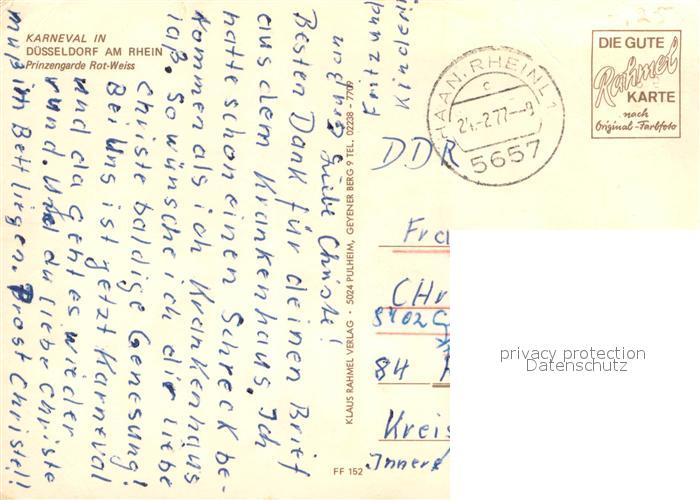 KARNEVAL IN
DÜSSELDORF AM RHEIN
Prinzengarde Rot-Weiss
Liebe Christe!
Besten Dank für deinen Brief
aus dem Krankenhaus. Ich
hatte schon einen Schreck be-
kommen als ich Krankenhaus
laß. So wünsche ich dir liebe
Christe baldige Genesung!
Bei uns ist jetzt Karneval
und da geht es wieder
rund. Und du liebe Christe
mußt im Bett liegen. Prost Christel!!
Fritz und
Kinder
KLAUS RAHMEL VERLAG · 5024 PULHEIM, GEYENER BERG 9 TEL. 02238 - 7709
FF 152
HAAN, RHEINL 1
c
24.-2.77--9
5657
DIE GUTE
Rahmel
KARTE
nach
Original-Farbfoto
DDR
Fra
CHr
84
Kreis
Innere
privacy protection
Datenschutz